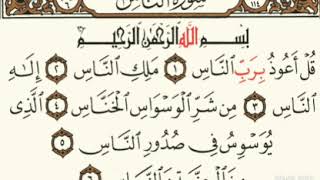 سورة الناس ١١٤
بِسْمِ اللَّهِ الرَّحْمَٰنِ الرَّحِيمِ
قُلْ أَعُوذُ بِرَبِّ النَّاسِ ١ مَلِكِ النَّاسِ ٢ إِلَٰهِ
النَّاسِ ٣ مِن شَرِّ الْوَسْوَاسِ الْخَنَّاسِ ٤ الَّذِي
يُوَسْوِسُ فِي صُدُورِ النَّاسِ ٥
مِنَ الْجِنَّةِ وَالنَّاسِ ٦